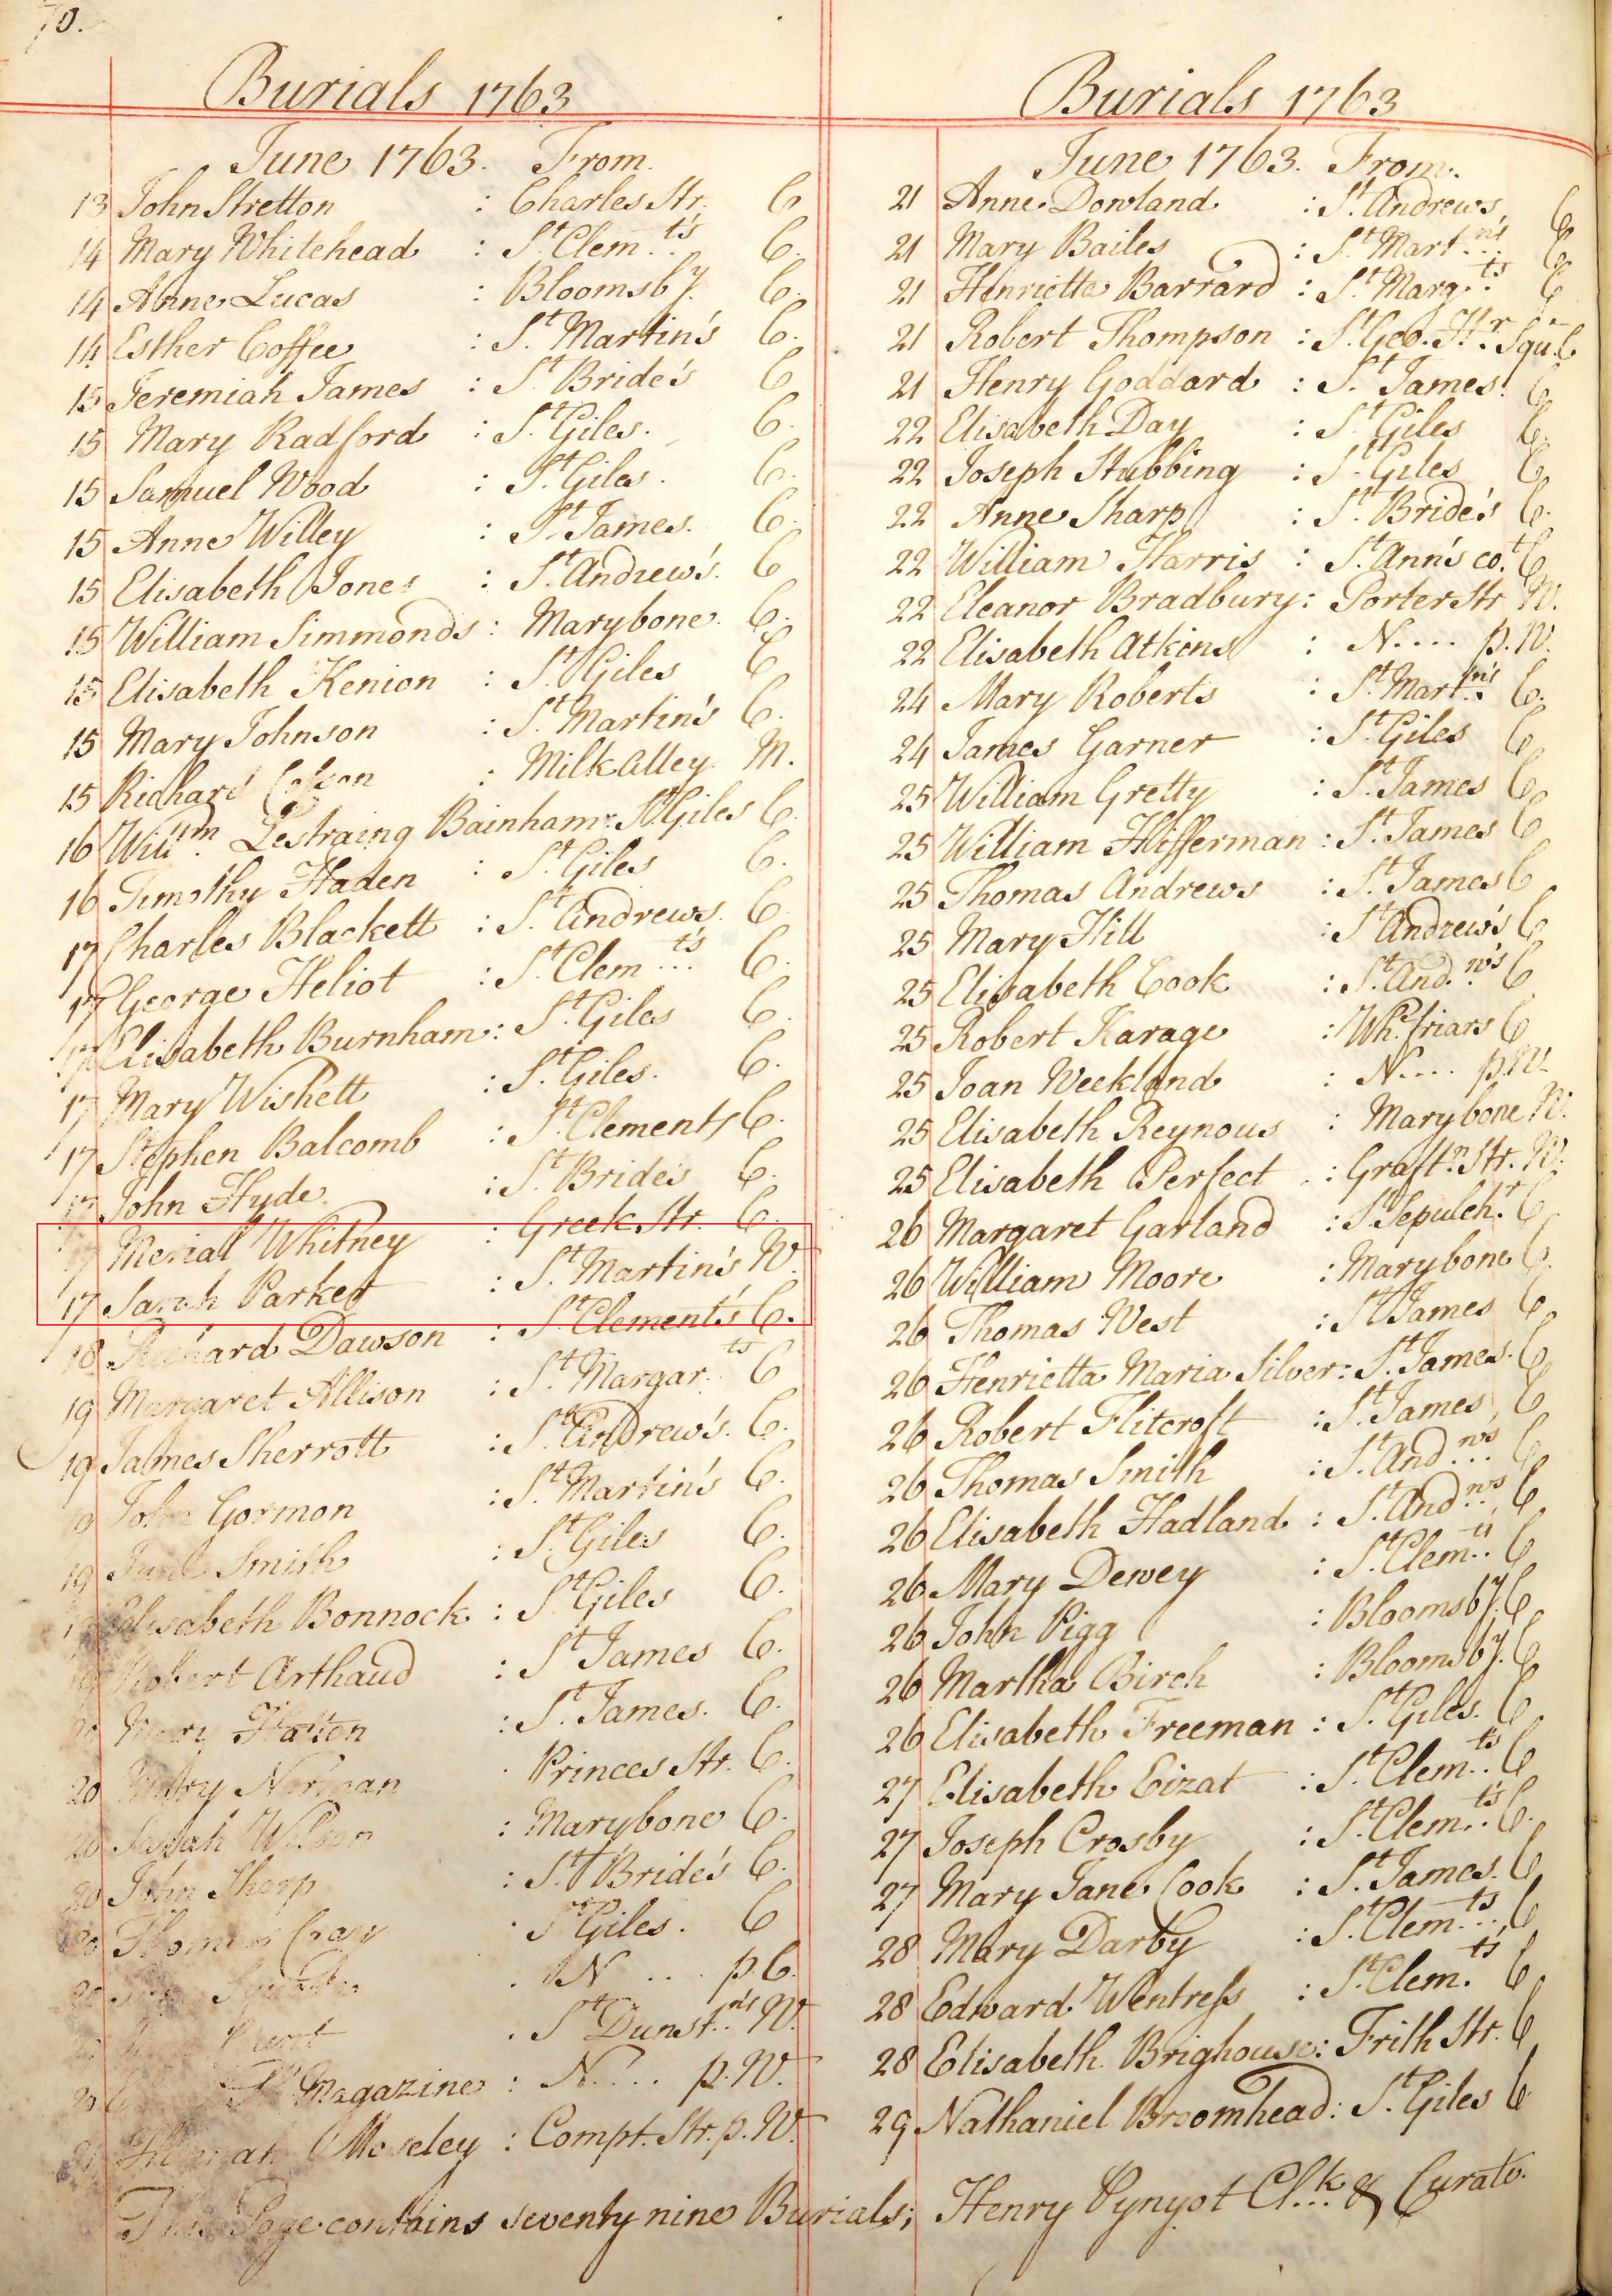 70.
Burials 1763
June 1763. From.
13 John Stretton : Charles Str. C
14 Mary Whitehead : St. Clem..ts C.
14 Anne Lucas : Bloomsby. C.
14 Esther Coffee : St. Martin's C.
15 Jeremiah James : St. Bride's C
15 Mary Radford : St. Giles. C.
15 Samuel Wood : St. Giles. C.
15 Anne Willey : St. James. C.
15 Elisabeth Jones : St. Andrew's. C
15 William Simmonds : Marybone. C.
15 Elisabeth Kenion : St. Giles C
15 Mary Johnson : St. Martin's C.
15 Richard : Milk Alley. M.
16 Willim. Lestraing Bainham : St. Giles C.
16 Timothy Haden : St. Giles C.
17 Charles Blackett : St. Andrews. C
17 George Heliot : St. Clem...ts C.
17 Elisabeth Burnham : St. Giles C.
17 Mary Wishett : St. Giles. C.
17 Stephen Balcomb : St. Clements C.
17 John Hyde : St. Brides C.
17 Merial Whitney : Greek Str. C.
17 Sarah Parker : St. Martin's W.
18 Richard Dawson : St. Clement's C.
19 Margaret Allison : St. Margar..ts C
19 James Sherrott : St. Andrew's. C.
19 John Gormon : St. Martin's C.
19 Jane Smith : St. Giles C.
19 Elisabeth Bonnock : St. Giles C.
19 Robert Arthaud : St. James C.
20 Mary : St. James. C.
20 Mary Norman : Princes Str. C.
20 Sarah Wilson : Marybone C.
20 John Sharp : St. Bride's C.
20 Thomas : St. Giles. C
20 : N .... p. C.
20 : St. Dunst..ns W.
20 Magazine : N.... p. W.
Hannah Moseley : Compt. Str. p. W.
Burials 1763
June 1763. From.
21 Anne Dowland : St. Andrews C
21 Mary Bailes : St. Mart...ns C
21 Henrietta Barrard : St. Marg..ts C
21 Robert Thompson : St. Geo. Hr. Squ. C
21 Henry Goddard : St. James. C
22 Elisabeth Day : St. Giles C.
22 Joseph Stubbing : St. Giles C
22 Anne Sharp : St. Bride's C.
22 William Harris : St. Ann's co.t C
22 Eleanor Bradbury : Porter Str W.
22 Elisabeth Atkins : N.... p. W.
24 Mary Roberts : St. Mart..n's C.
24 James Garner : St. Giles C
25 William Gretty : St. James C
25 William Hifferman : St. James C
25 Thomas Andrews : St. James C
25 Mary Hill : St. Andrew's C
25 Elisabeth Cook : St. And..w's C
25 Robert Karage : Whe. friars C
25 Joan Weekland : N.... p. W.
25 Elisabeth Reynous : Marybone W.
25 Elisabeth Perfect : Graftn. Str. W.
26 Margaret Garland : St. Sepulchr. C
26 William Moore : Marybone C.
26 Thomas West : St. James C.
26 Henrietta Maria Silver : St. James. C
26 Robert Flitcroft : St. James C
26 Thomas Smith : St. And...ws C
26 Elisabeth Hadland : St. And..ws C
26 Mary Dewey : St. Clem..ts C
26 John Pigg : Bloomsby. C
26 Martha Birch : Bloomsby. C
26 Elisabeth Freeman : St. Giles. C
27 Elisabeth Eizat : St. Clem..ts C
27 Joseph Crosby : St. Clem..ts C.
27 Mary Jane Cook : St. James. C
28 Mary Darby : St. Clem...ts C
28 Edward Wentress : St. Clem.ts C
28 Elisabeth Brighouse : Frith Str. C
29 Nathaniel Broomhead : St. Giles C
This Page contains seventy nine Burials; Henry Pynyot Cl.k & Curate.